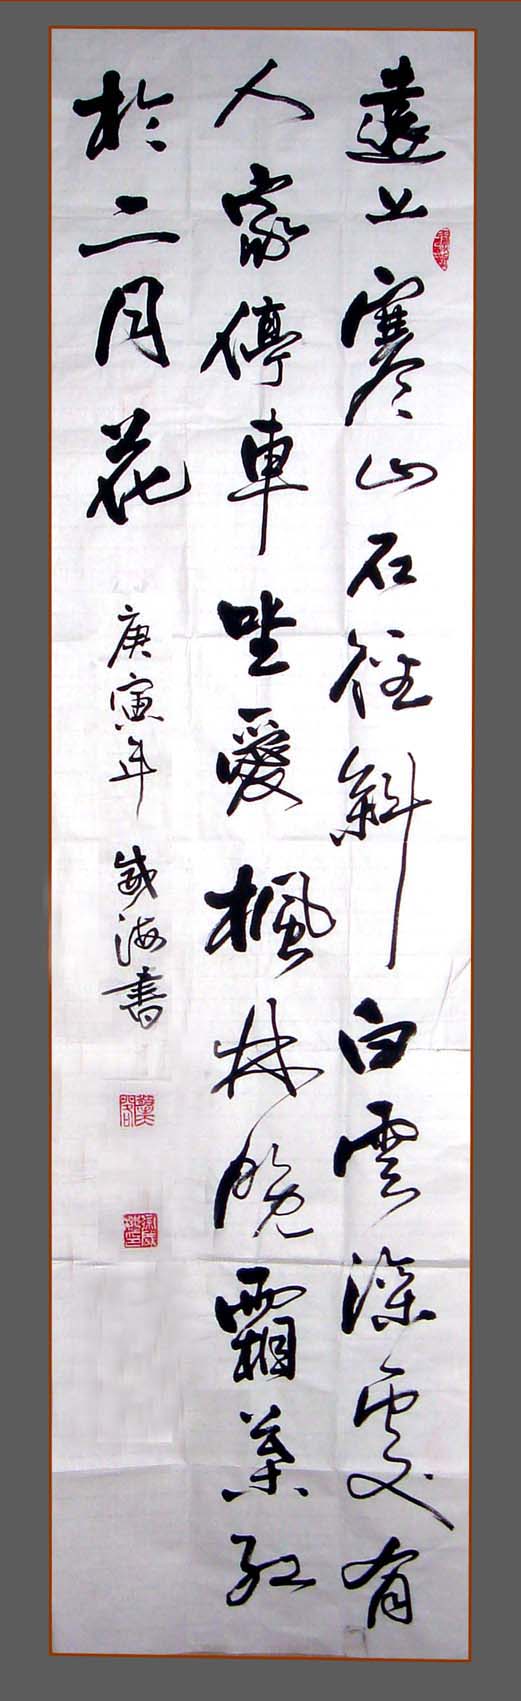 遠上寒山石徑斜白雲深處有
人家停車坐愛楓林晚霜葉紅
於二月花
庚寅年 海書